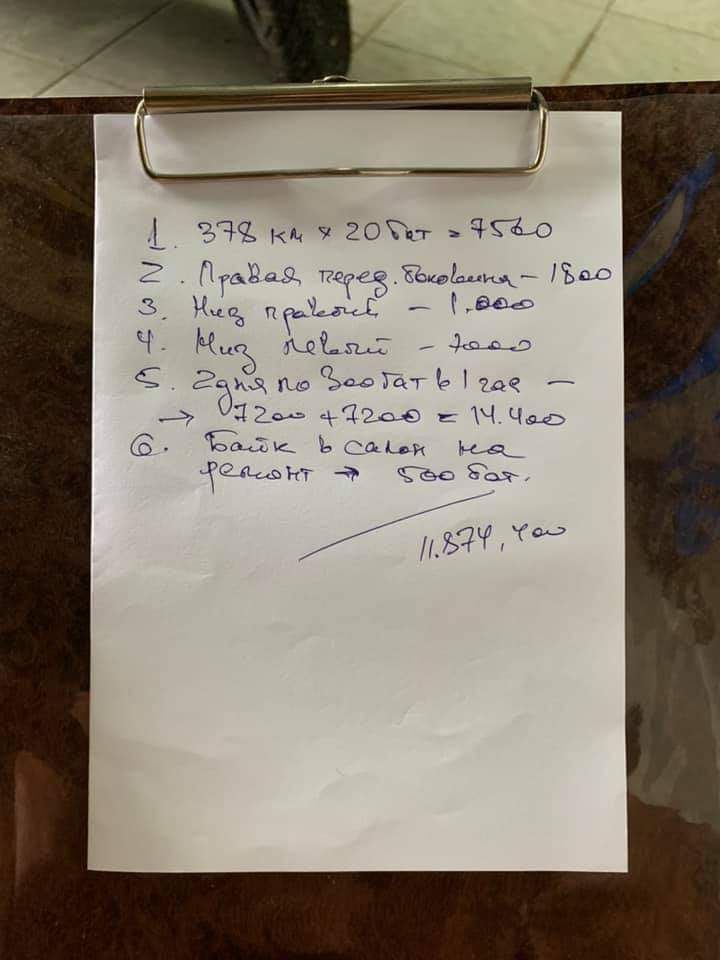 1. 378 км × 20 бат = 7560
2. Правая перед. боковина – 1800
3. Низ правый – 1.000
4. Низ левый – 7000
5. 2 дня по 300 бат в 1 час –
→ 7200 + 7200 = 14.400
6. Байк в салон на
ремонт → 500 бат.
11.874,400